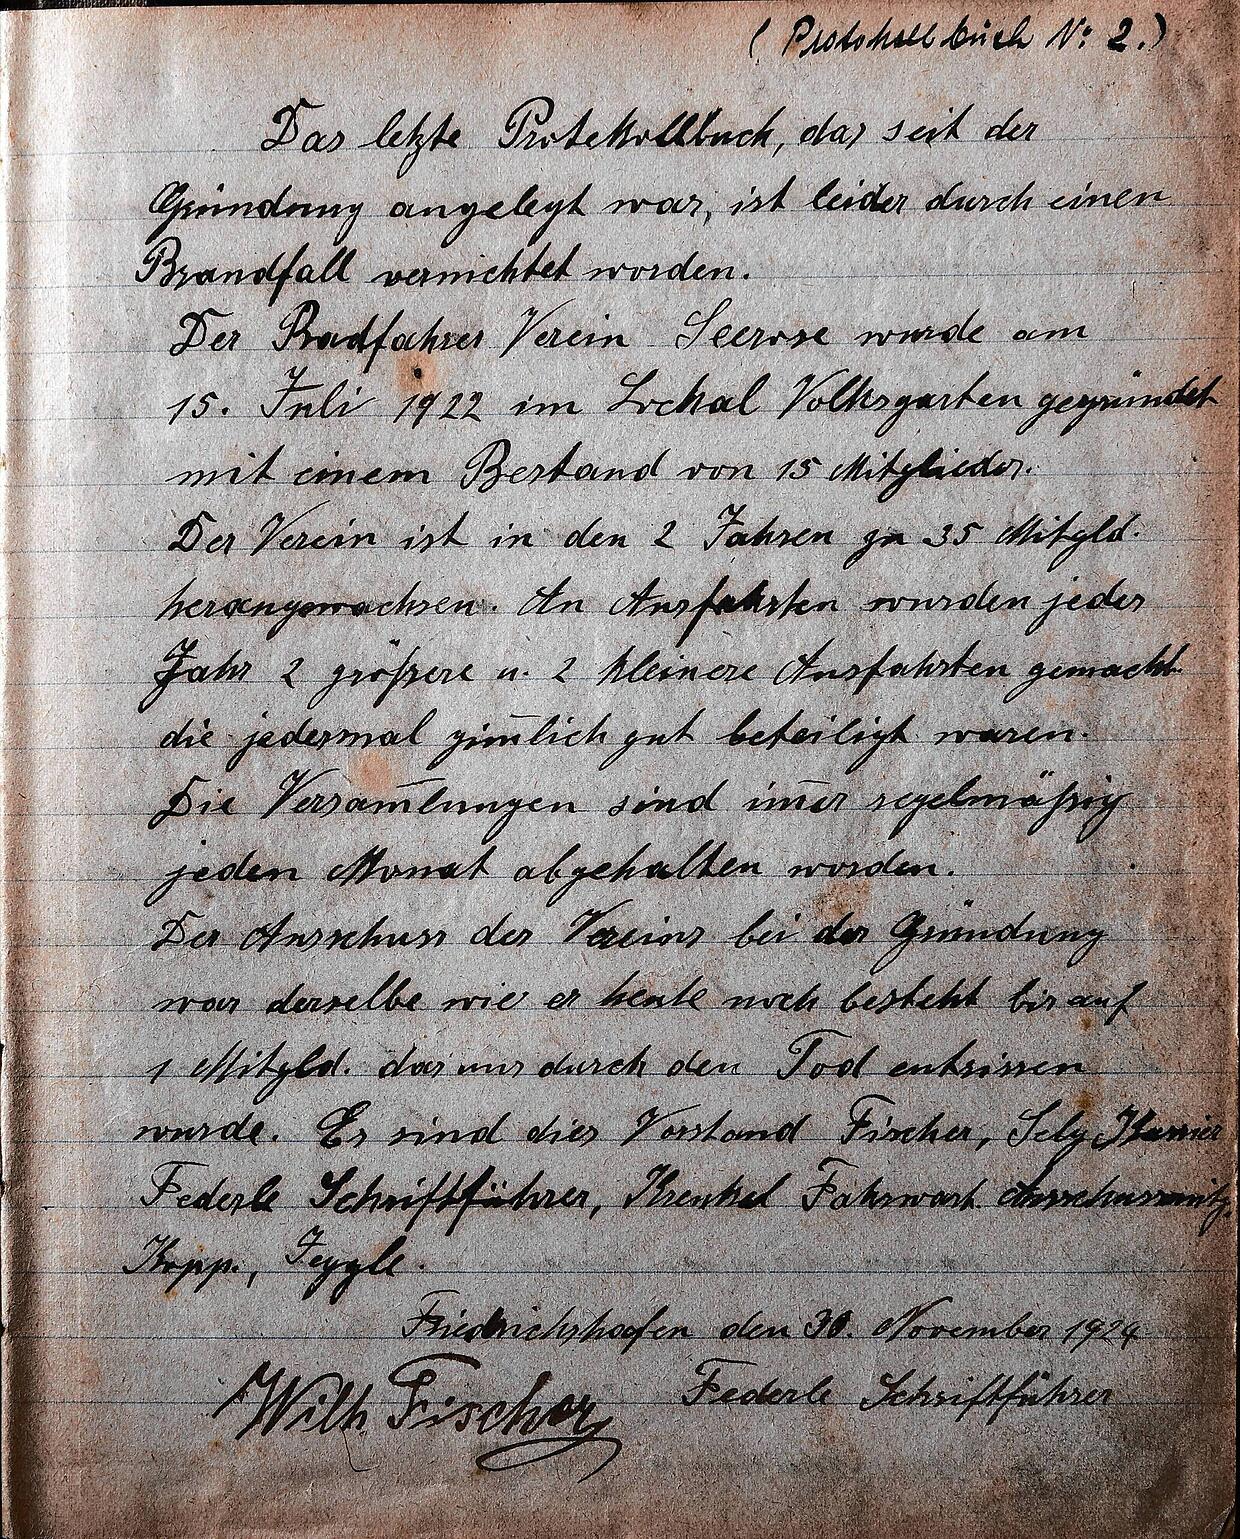 ( Protokollbuch Nº 2.)
Das letzte Protokollbuch, das seit der
Gründung angelegt war, ist leider durch einen
Brandfall vernichtet worden.
Der Radfahrer Verein Seerose wurde am
15. Juli 1922 im Lockal Volksgarten gegründet
mit einem Bestand von 15 Mitglieder.
Der Verein ist in den 2 Jahren zu 35 Mitgld.
herangewachsen. An Ausfahrten wurden jedes
Jahr 2 größere u. 2 kleinere Ausfahrten gemacht
die jedesmal zim̅lich gut beteiligt waren.
Die Versam̅lungen sind im̅er regelmäßig
jeden Monat abgehalten worden.
Der Ausschuss des Vereins bei der Gründung
war derselbe wie er heute noch besteht bis auf
1 Mitgld. das uns durch den Tod entrissen
wurde. Es sind dies Vorstand Fischer, Kassier
Federle Schriftführer, Krenkel Fahrwart. Ausschussmitg.
Kopp., Jeggle.
Friedrichshafen den 30. November 1924
Wilh Fischer Federle Schriftführer